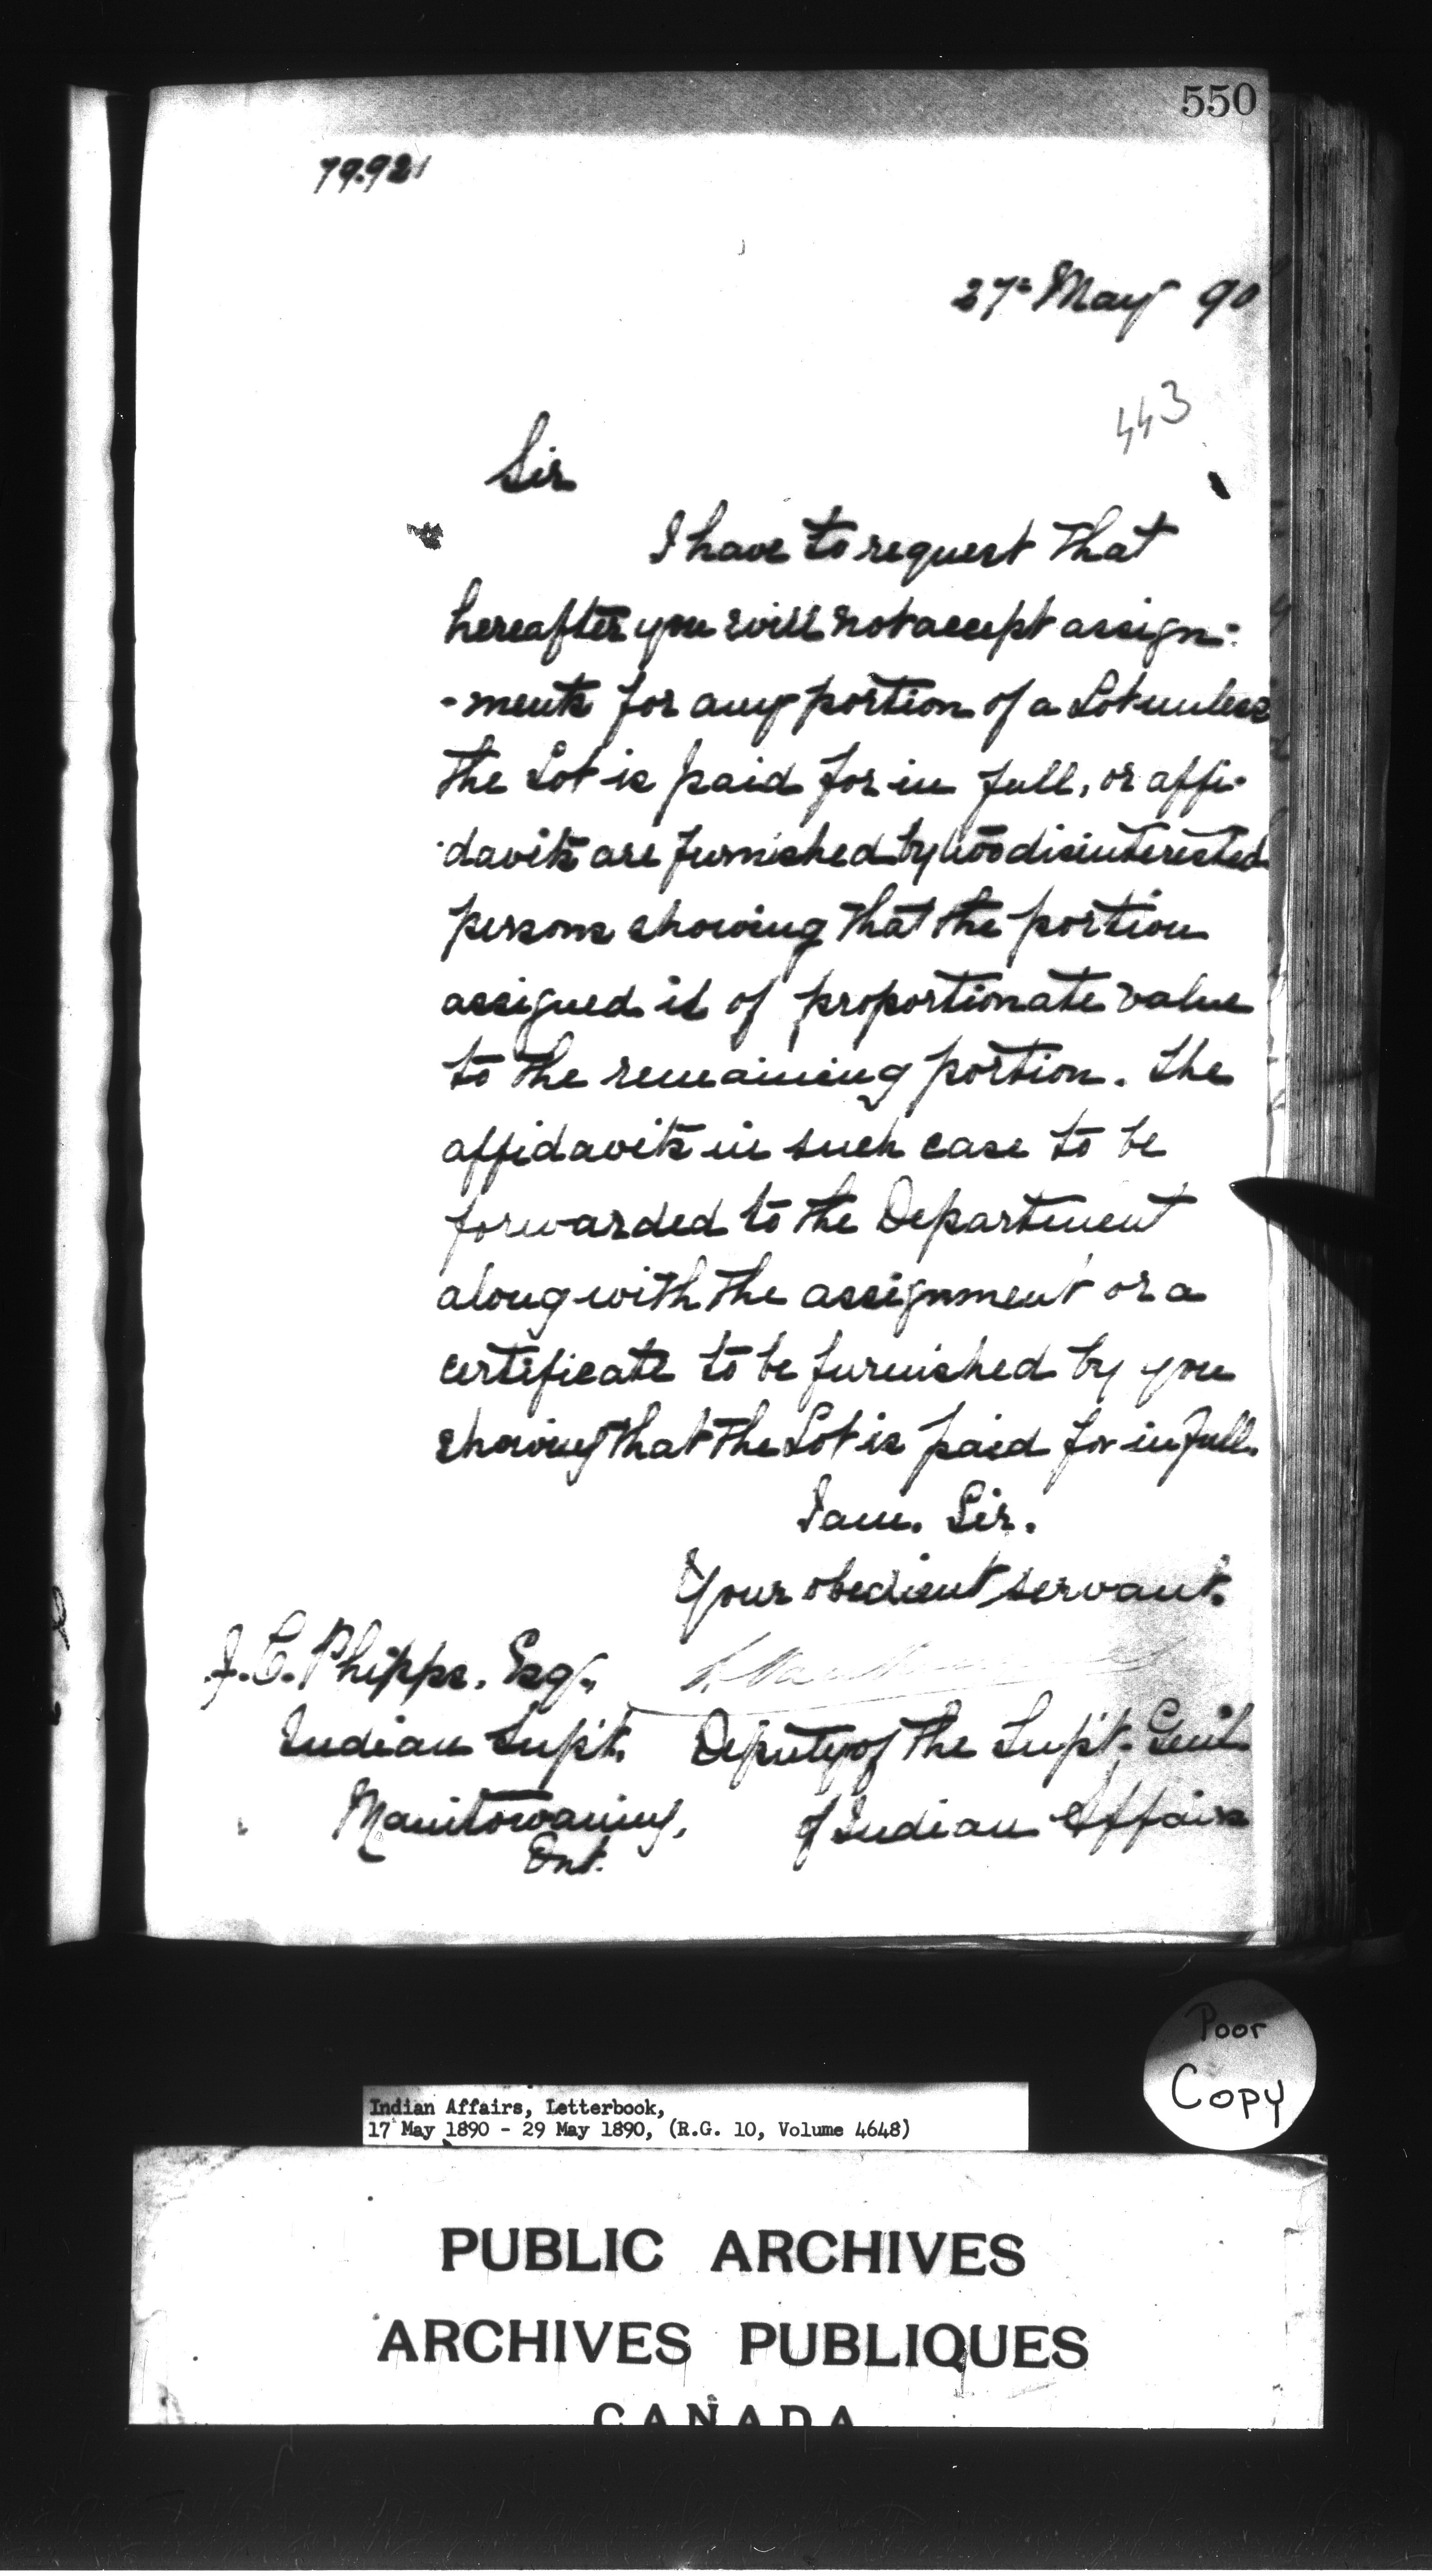 550
79.921
27th May 90
443
Sir
I have to request that
hereafter you will not accept assign-
-ments for any portion of a Lot unless
the Lot is paid for in full, or affi-
-davits are furnished by two disinterested
persons showing that the portion
assigned is of proportionate value
to the remaining portion. The
affidavits in such case to be
forwarded to the Department
along with the assignment or a
certificate to be furnished by you
showing that the Lot is paid for in full.
I am. Sir.
Your obedient servant.
J. C. Phipps. Esq.
Indian Supt. Deputy of the Supt. Genl
Manitowaning, of Indian Affairs
Ont.
Poor
Copy
Indian Affairs, Letterbook,
17 May 1890 - 29 May 1890, (R.G. 10, Volume 4648)
PUBLIC ARCHIVES
ARCHIVES PUBLIQUES
CANADA